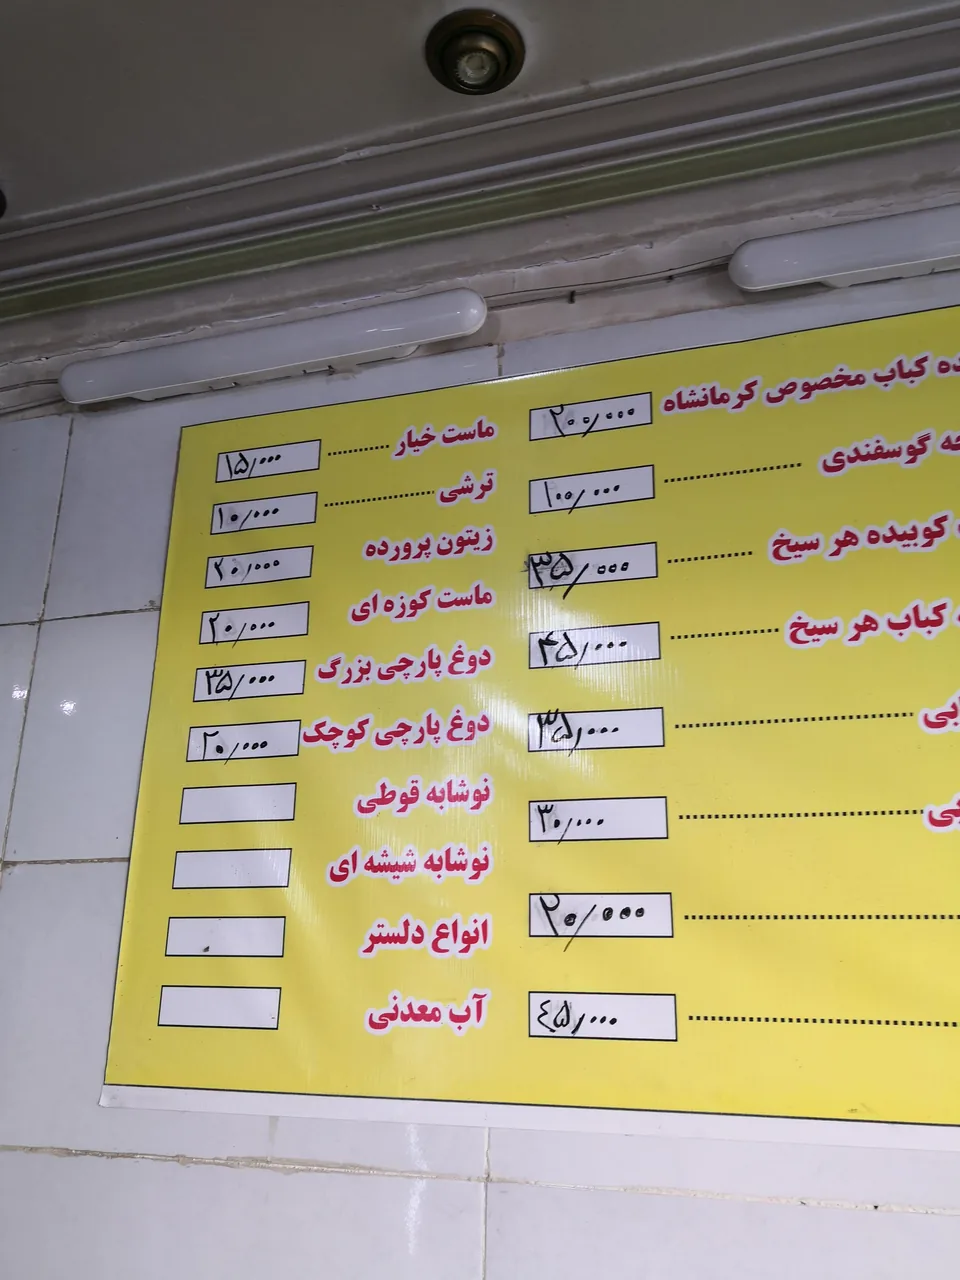 کباب مخصوص کرمانشاه ۲۰۰/۰۰۰
گوسفندی ۱۰۰/۰۰۰
کوبیده هر سیخ ۳۵/۰۰۰
کباب هر سیخ ۴۵/۰۰۰
۳۵/۰۰۰
۳۰/۰۰۰
۲۰/۰۰۰
۴۵/۰۰۰
ماست خیار ۱۵/۰۰۰
ترشی ۱۰/۰۰۰
زیتون پرورده ۲۰/۰۰۰
ماست کوزه ای ۲۰/۰۰۰
دوغ پارچی بزرگ ۳۵/۰۰۰
دوغ پارچی کوچک ۲۰/۰۰۰
نوشابه قوطی
نوشابه شیشه ای
انواع دلستر
آب معدنی